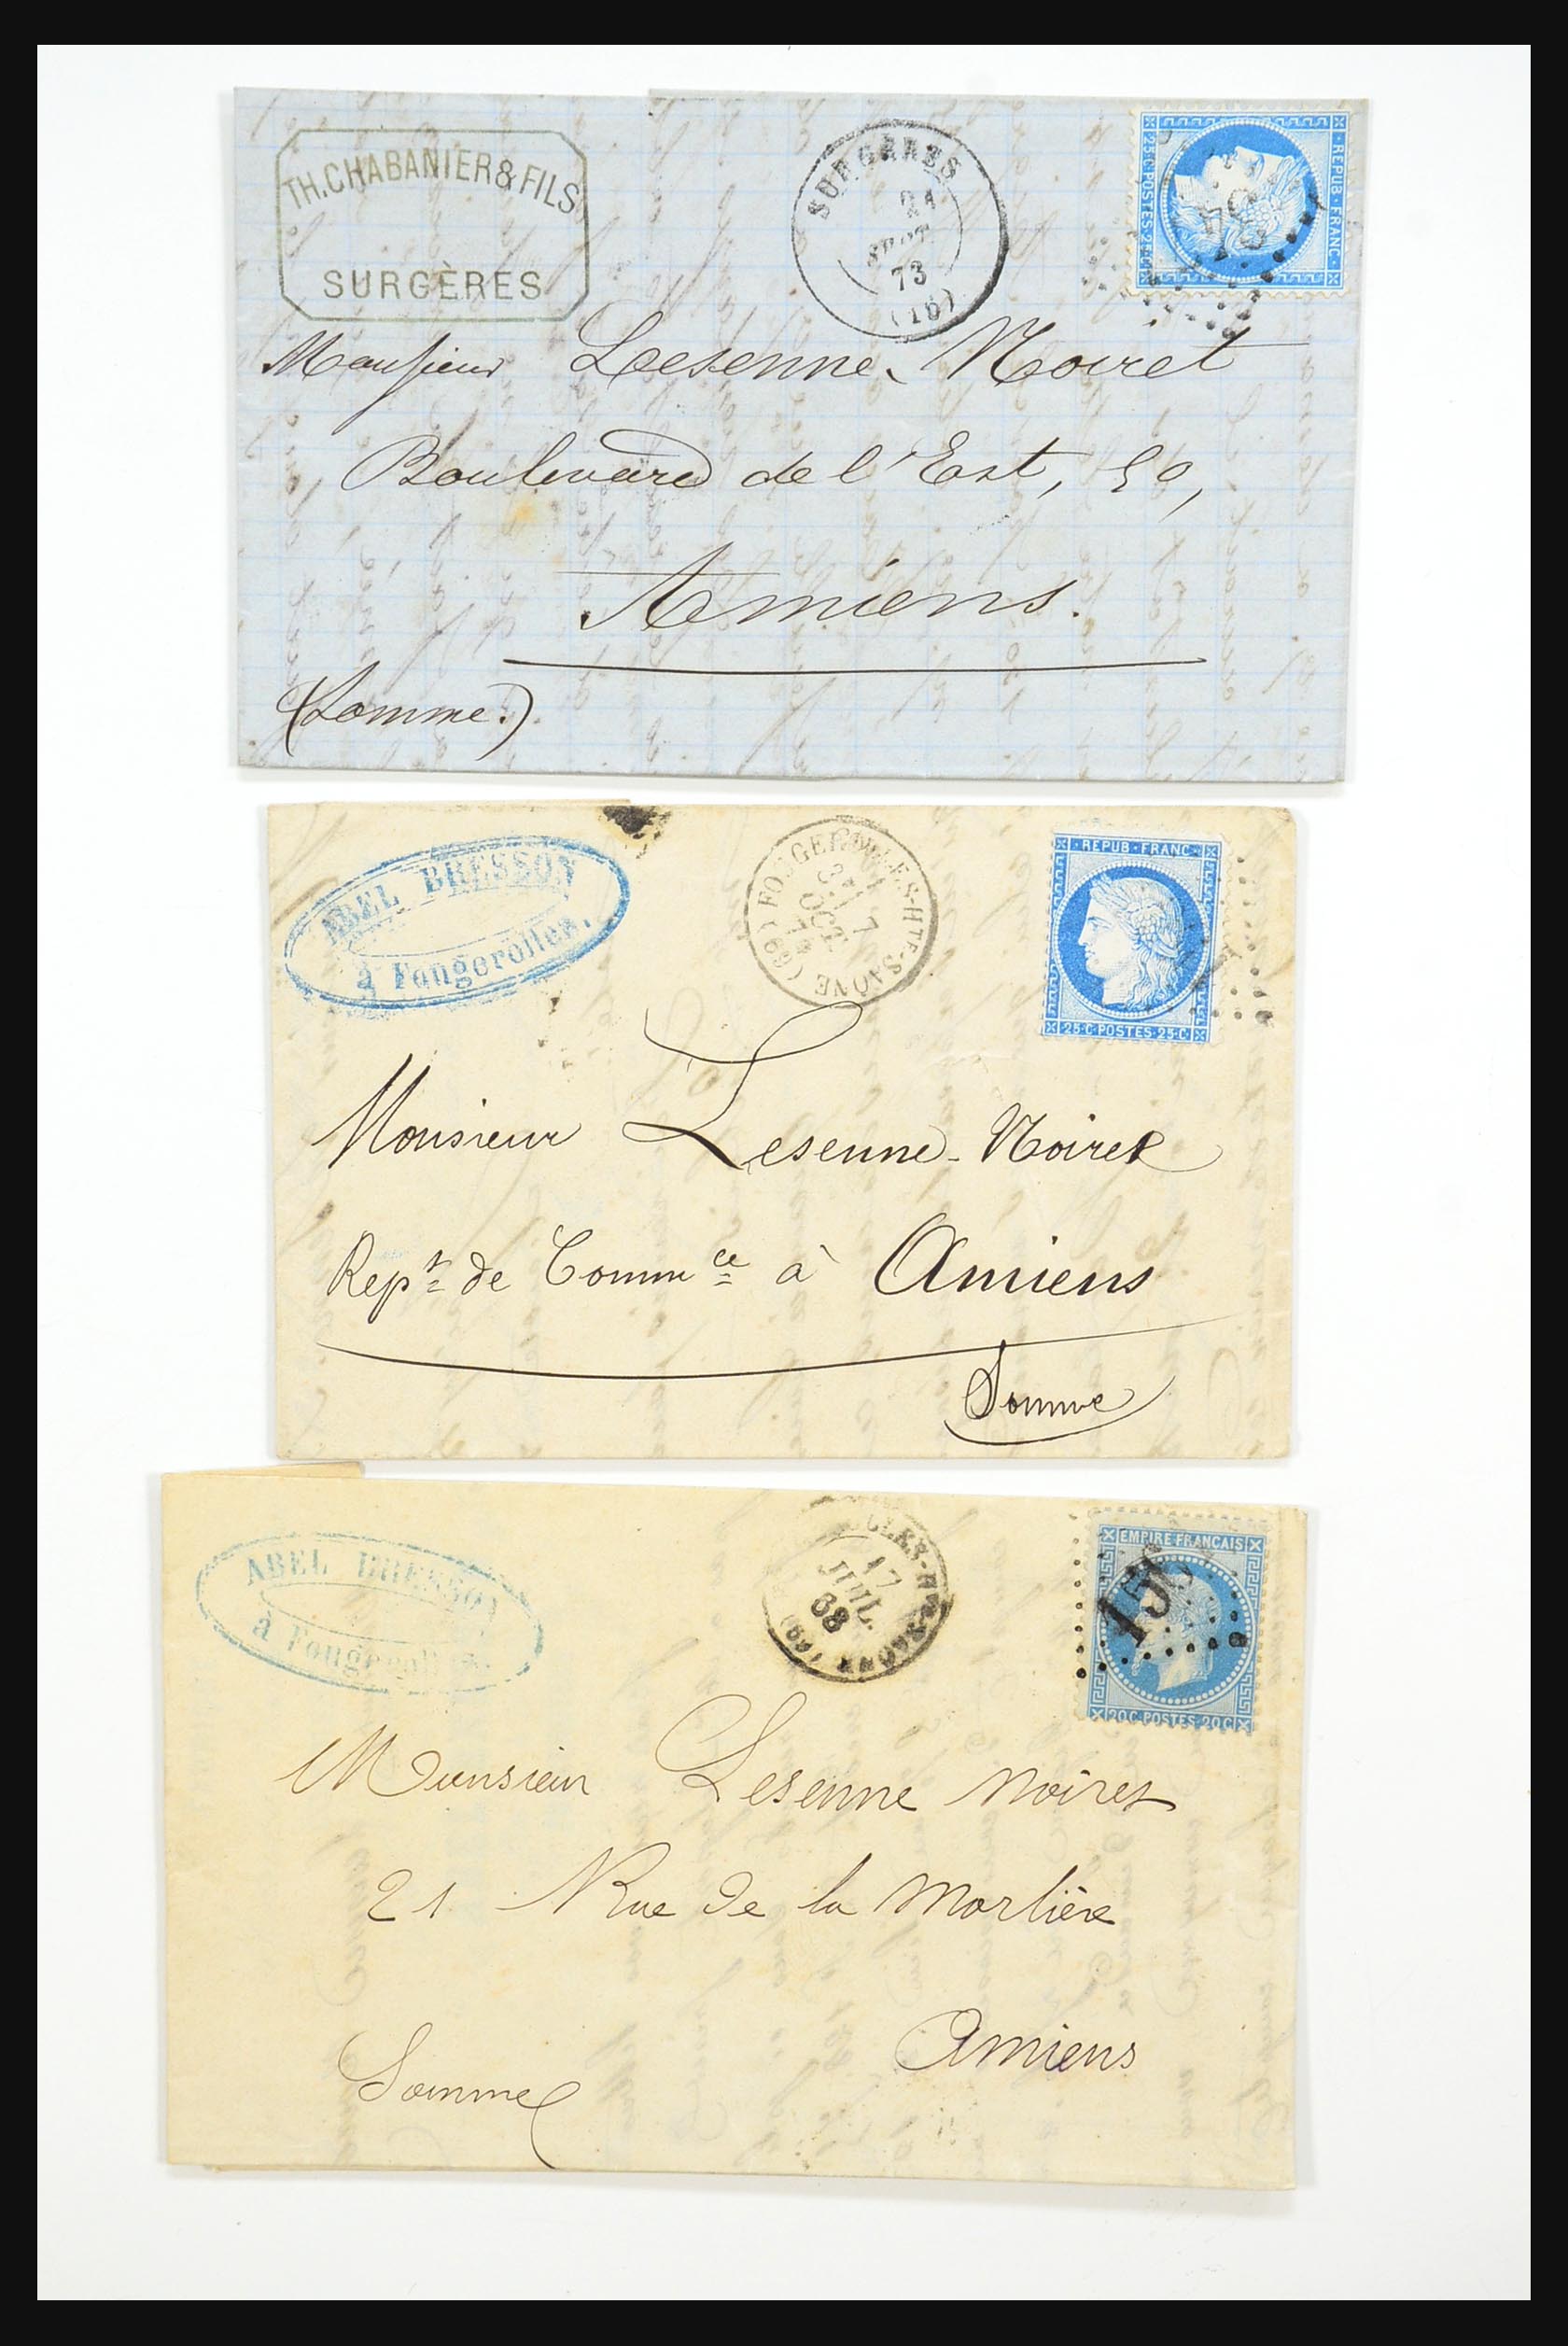 TH. CHABANIER & FILS
SURGÈRES
SURGÈRES
73
(16)
REPUB · FRANC
25·C·POSTES·25·C
Monsieur Lesenne-Noiret
Boulevard de l'Est, 50,
Amiens.
(Somme.)
ABEL BRESSON
à Fougerolles.
FOUGEROLLES-HTE-SAÔNE (69)
OCT.
· REPUB · FRANC ·
25·C·POSTES·25·C
Monsieur Lesenne-Noiret
Rept de Commce à Amiens
Somme
ABEL BRESSON
à Fougerolles.
17
JUIL.
68
(69)
EMPIRE FRANCAIS
20C·POSTES·20C
Monsieur Lesenne Noiret
21 Rue de la Morlière
Amiens
Somme